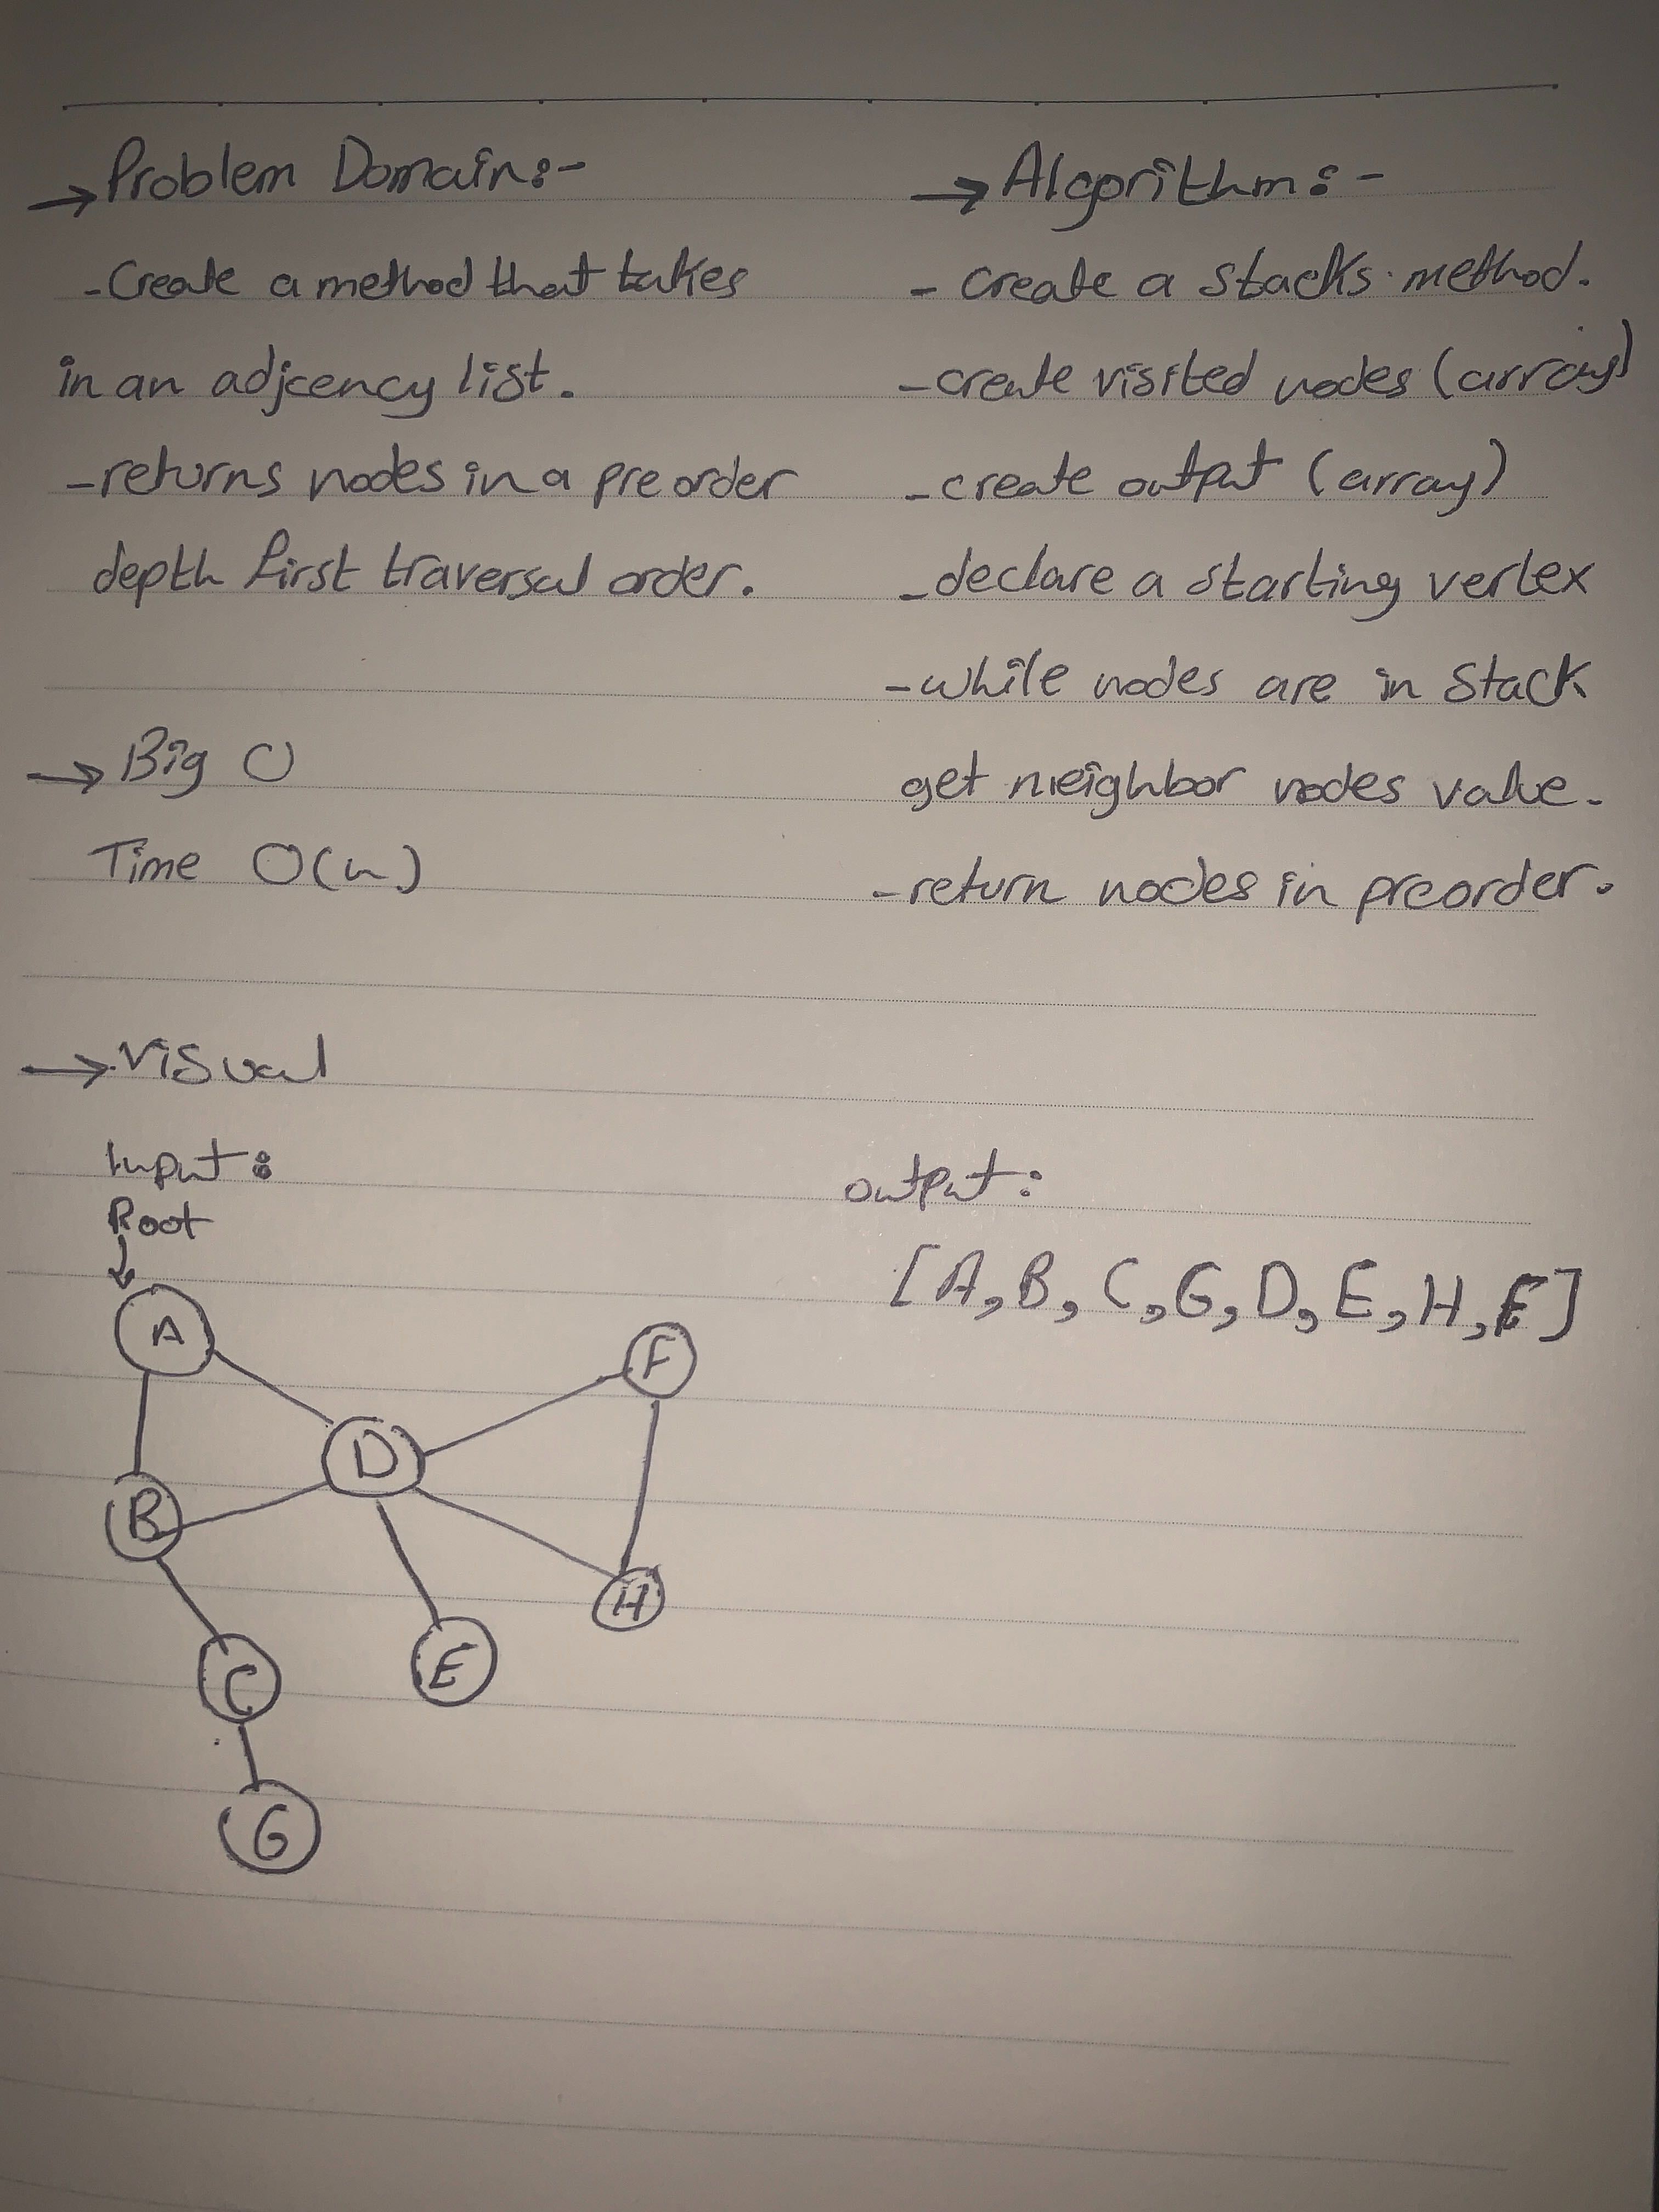 → Problem Domain:-
-Create a method that takes
in an adjcency list.
-returns nodes in a preorder
depth first traversal order.
→ Big O
Time O(n)
→ Algorithm:-
- create a stacks method.
-create visited nodes (array)
-create output (array)
-declare a starting vertex
-while nodes are in Stack
get neighbor nodes value.
-return nodes in preorder.
→ Visual
Input:
Root
A
F
D
B
H
C
E
G
output:
[A, B, C, G, D, E, H, F]